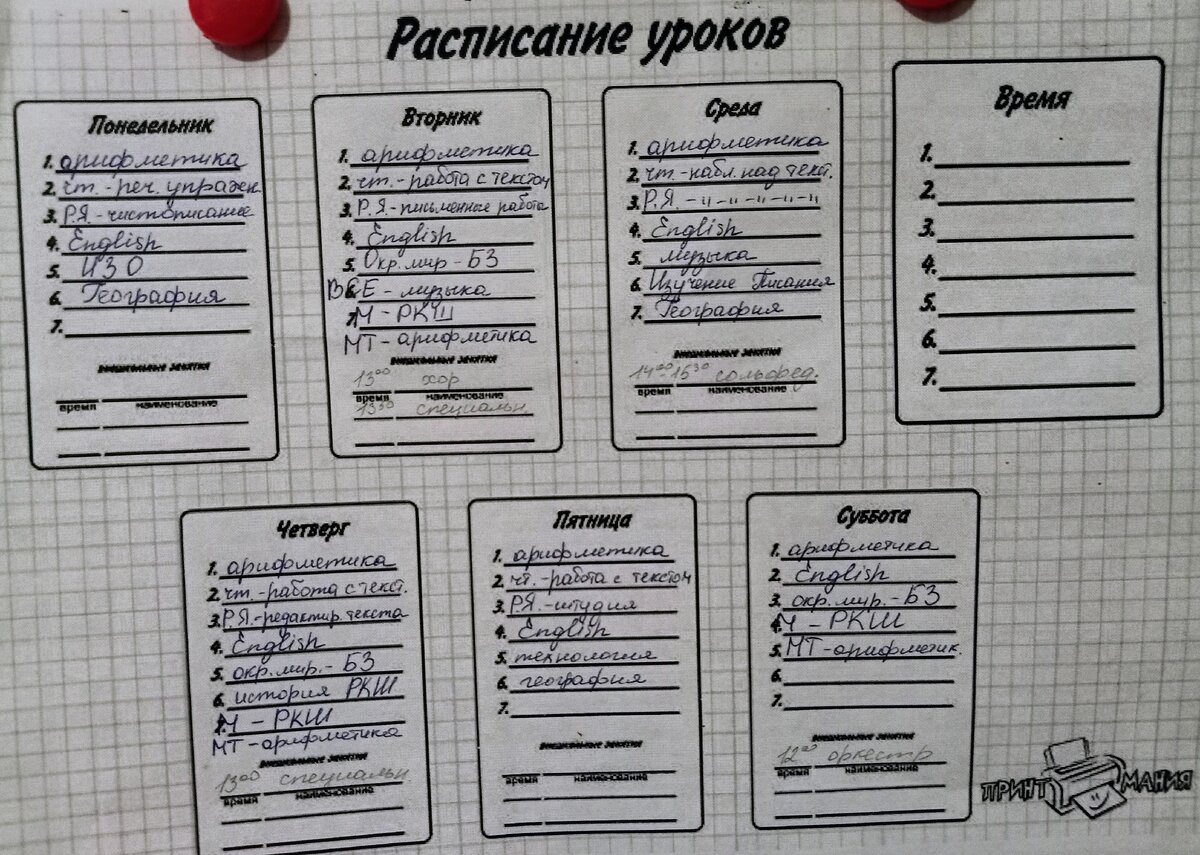 Расписание уроков
Понедельник
1. арифметика
2. чт. - реч. упражн.
3. Р.Я. - чистописание
4. English
5. ИЗО
6. География
7.
внешкольные занятия
время наименование
Вторник
1. арифметика
2. чт. - работа с текстом
3. Р.Я. - письменные работа
4. English
5. Окр. мир - БЗ
6. ВСЕ - музыка
7. М - РКШ
МТ - арифметика
внешкольные занятия
13 00 хор
время наименование
13 50 специальн
Среда
1. арифметика
2. чт. - набл. над текст.
3. Р.Я. - " - " - " - " - "
4. English
5. музыка
6. Изучение Писания
7. География
внешкольные занятия
14 00 - 15 30 сольфед.
время наименование
Время
1.
2.
3.
4.
5.
6.
7.
Четверг
1. арифметика
2. чт. - работа с текст.
3. Р.Я. - редактир. текста
4. English
5. окр. мир. - БЗ
6. история РКШ
7. М - РКШ
МТ - арифметика
внешкольные занятия
13 00 специальн
время наименование
Пятница
1. арифметика
2. чт. - работа с текстом
3. Р.Я. - штудия
4. English
5. технология
6. география
7.
внешкольные занятия
время наименование
Суббота
1. арифметика
2. English
3. окр. мир. - БЗ
4. М - РКШ
5. МТ - арифметик.
6.
7.
внешкольные занятия
12 00 оркестр
время наименование
ПРИНТ МАНИЯ